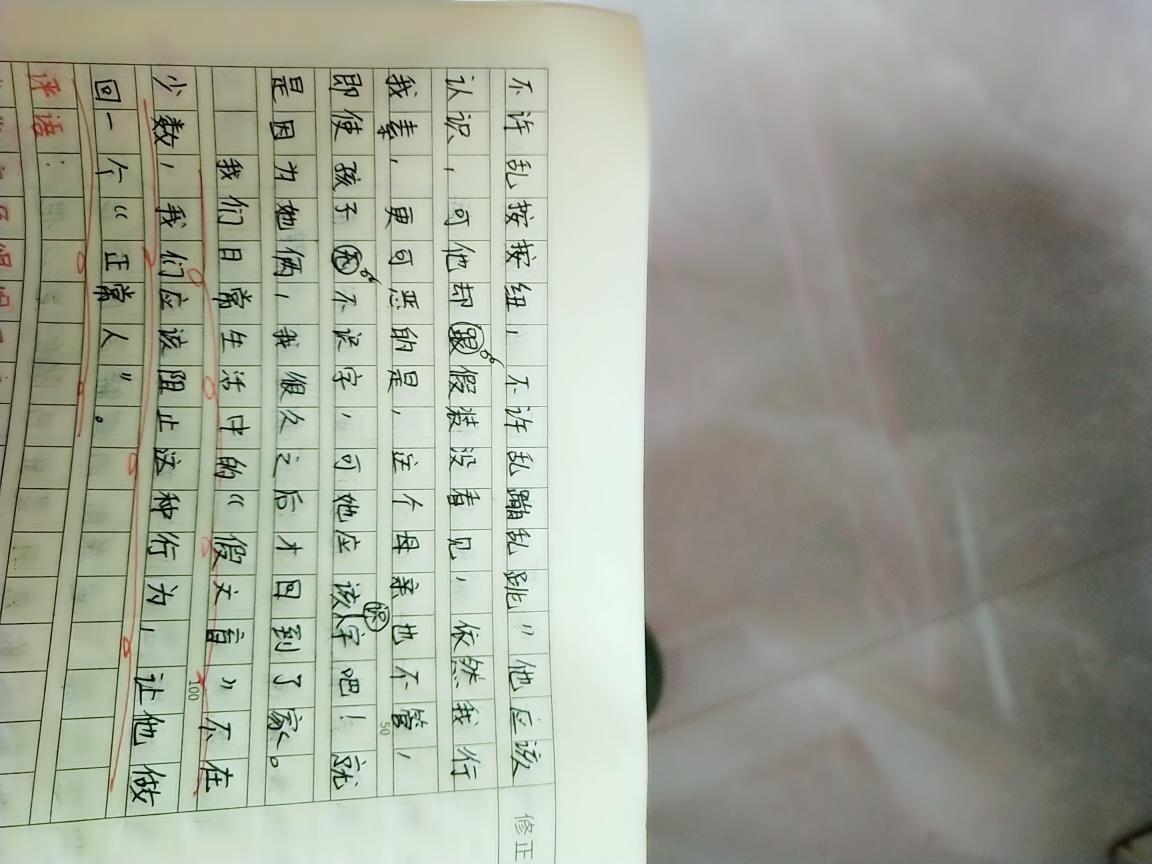 不许乱按按纽，不许乱蹦乱跳"他应该
认识，可他却假装没看见，依然我行
我素，更可恶的是，这个母亲也不管，
即使孩子不识字，可她应该识字吧！就
50
是因为她俩，我很久之后才回到了家。
我们日常生活中的"假文盲"不在
100
少数，我们应该阻止这种行为，让他做
回一个"正常人"。
评语：
修正